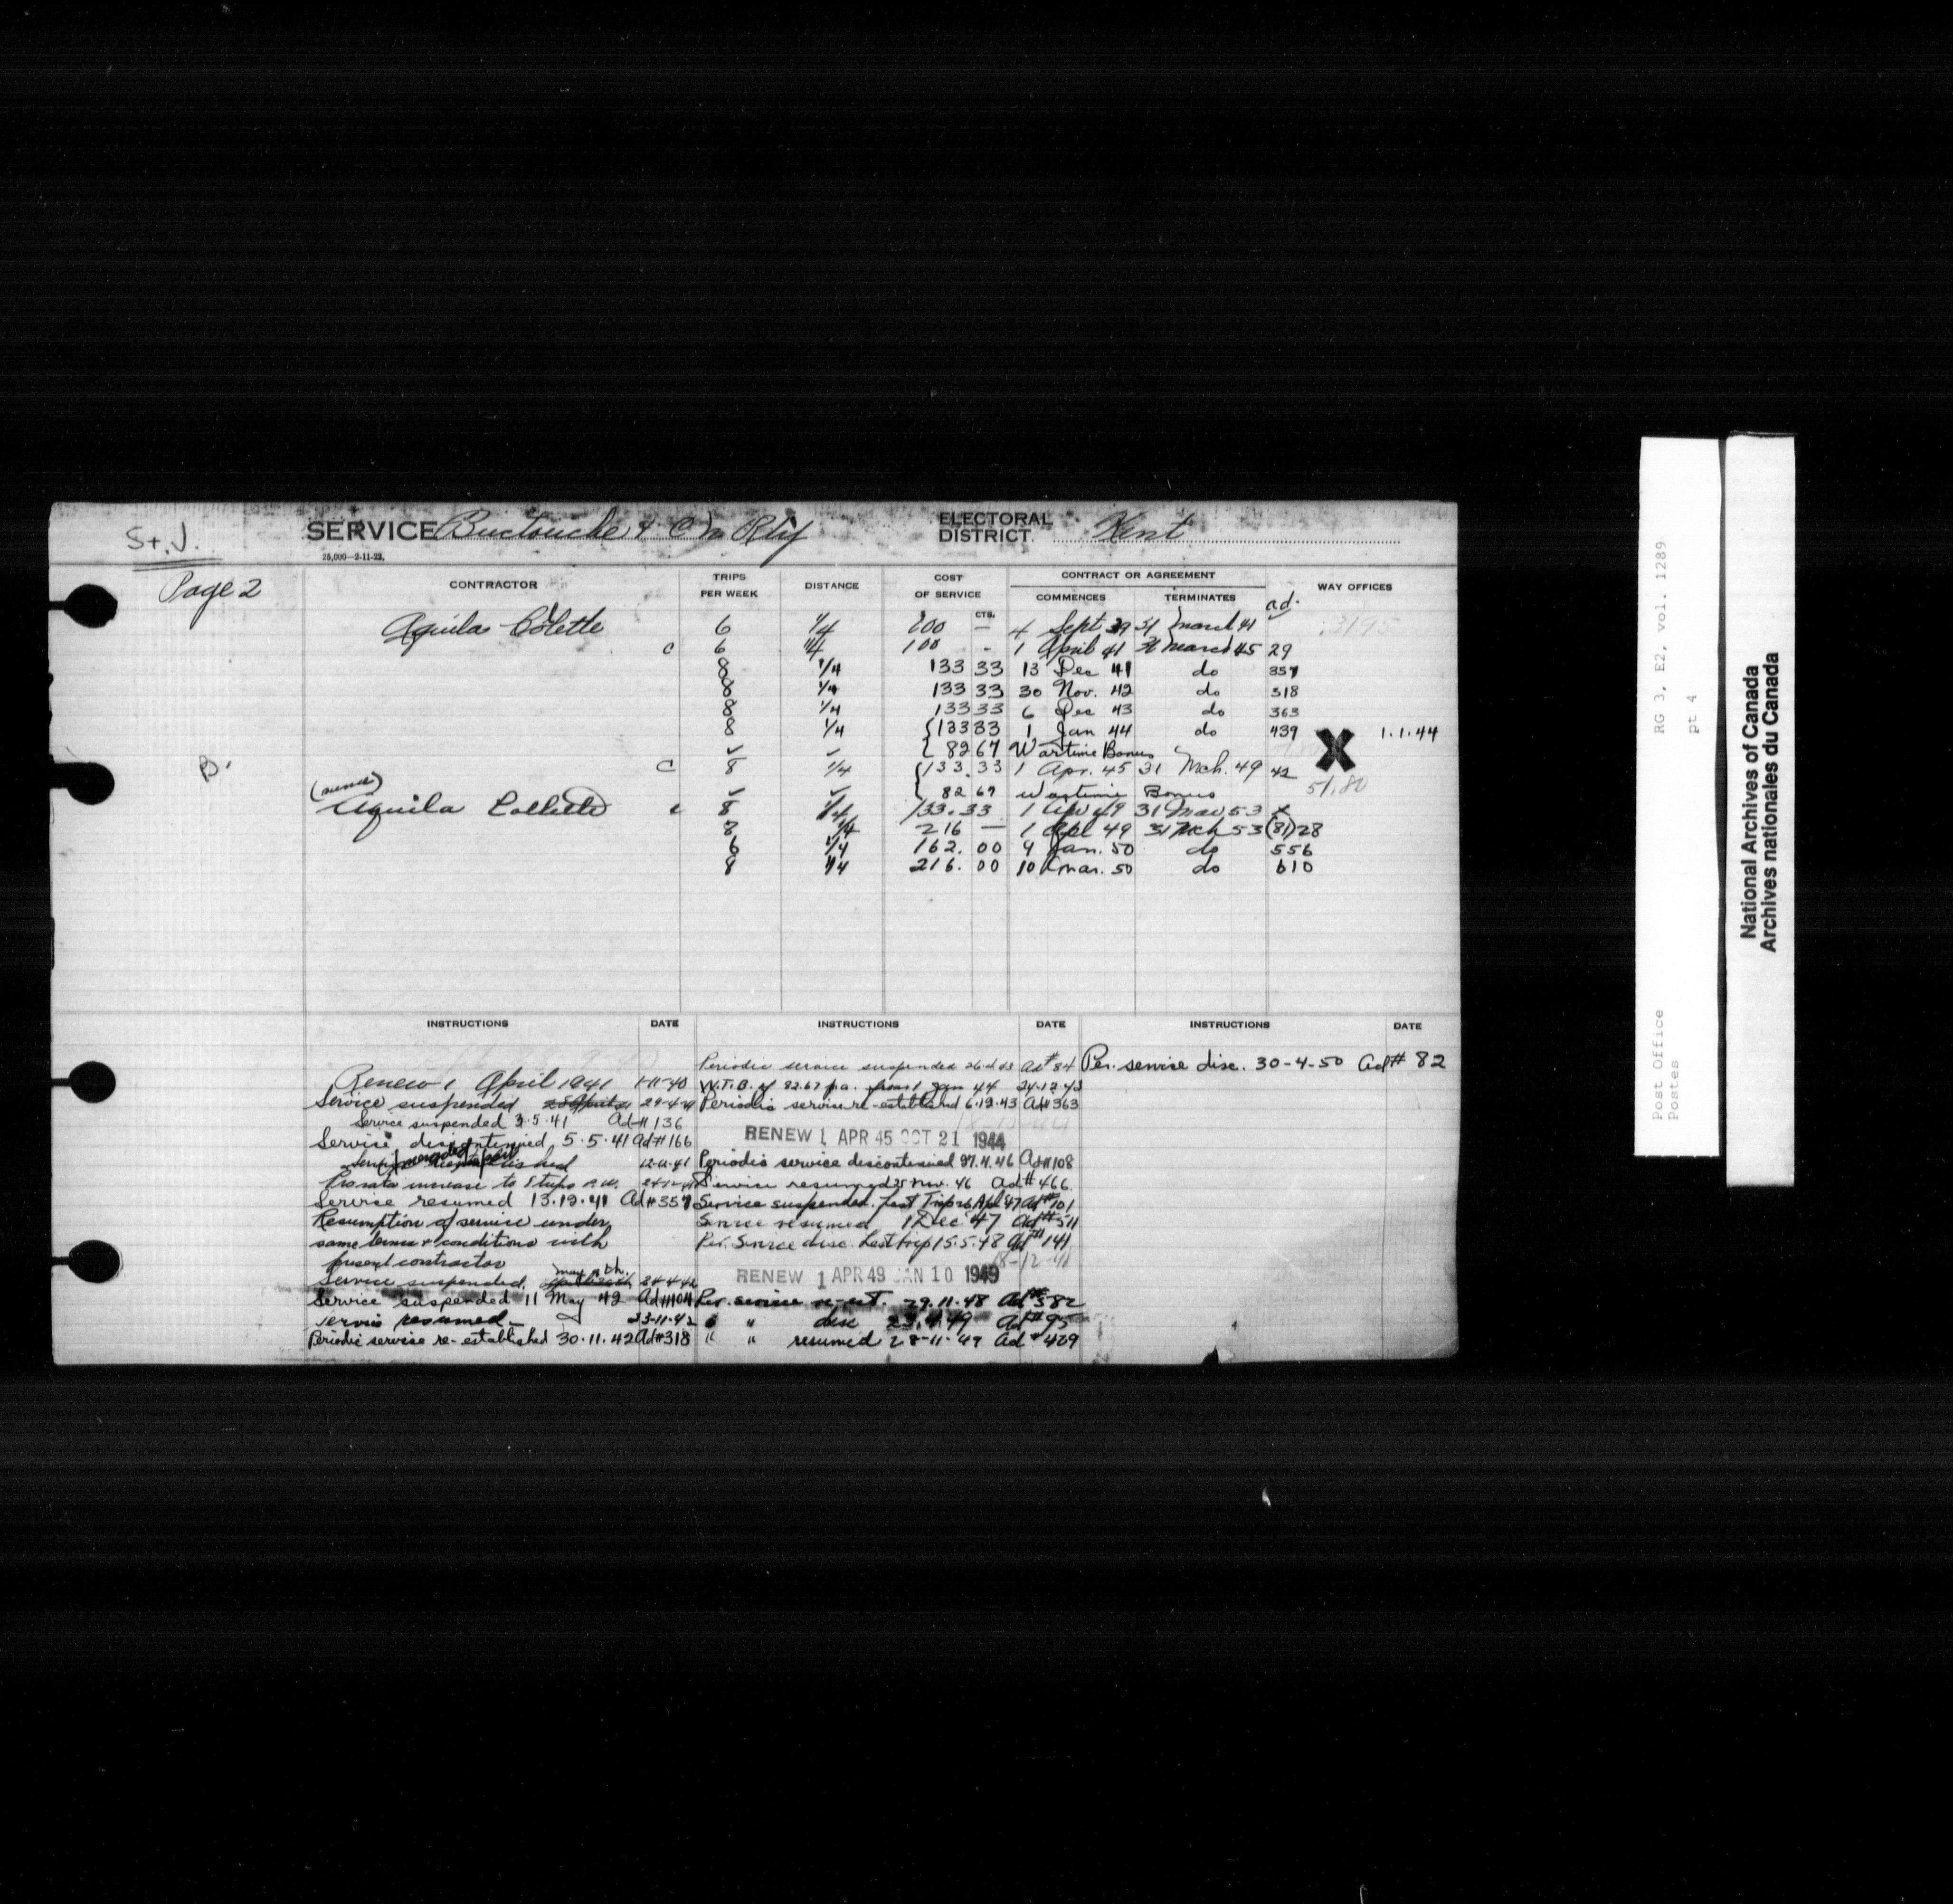 St. J.
SERVICE Buctouche & C N Rly
ELECTORAL DISTRICT Kent
25,000—2-11-22.
Page 2
CONTRACTOR
TRIPS PER WEEK
DISTANCE
COST OF SERVICE
CTS.
CONTRACT OR AGREEMENT
COMMENCES
TERMINATES
ad.
WAY OFFICES
Aquila Colette 6 1/4 100 — 4 Sept 39 31 march 41 3195
c 6 1/4 100 - 1 April 41 31 march 45 29
8 1/4 133 33 13 Dec 41 do 357
8 1/4 133 33 30 Nov. 42 do 318
8 1/4 133 33 6 Dec 43 do 363
8 1/4 133 33 1 Jan 44 do 439 X 1.1.44
82 67 Wartime Bonus
B.
c 8 1/4 133.33 1 Apr. 45 31 Mch. 49 42
82 67 Wartime Bonus 51.80
Aquila Collette c 8 1/4 133.33 1 Apr 49 31 Mar 53 x
8 1/4 216 — 1 Apl 49 31 Mch 53 (81) 28
6 1/4 162.00 4 Jan. 50 do 556
8 1/4 216.00 10 mar. 50 do 610
INSTRUCTIONS DATE INSTRUCTIONS DATE INSTRUCTIONS DATE
Renew 1 April 1941 1-11-40
Service suspended 29-4-41
Service suspended 3.5.41 Ad# 136
Service discontinued 5.5.41 Ad# 166
12-11-41
Pro rata increase to 8 trips p.w.
Service resumed 13.12.41 Ad# 357
Resumption of service under
same terms & conditions with
present contractor
Service suspended may 9th.
Service suspended 11 May 42 Ad# 104
Service resumed - 23-11-42
Periodic service re-established 30.11.42 Ad# 318
Periodic service suspended Ad# 84
W.T.B. of 82.67 p.a. from 1 Jan 44 24-12-43
Periodic service re-established 6.12.43 Ad# 363
RENEW 1 APR 45 OCT 21 1944
Periodic service discontinued 27.4.46 Ad# 108
Service resumed 25 Nov. 46 Ad# 466.
Service suspended. Last Trip 26 Apl 47 Ad# 101
Service resumed 1 Dec. 47 Ad# 511
Per. Service disc. Last trip 15.5.48 Ad# 141
18-12-48
RENEW 1 APR 49 JAN 10 1949
Per. service re-est. 29.11.48 Ad# 582
" " disc 23.4.49 Ad# 95
" " resumed 28-11-49 Ad# 429
Per. service disc. 30-4-50 Ad# 82
Post Office RG 3, E2, vol. 1289
Postes pt 4
National Archives of Canada
Archives nationales du Canada